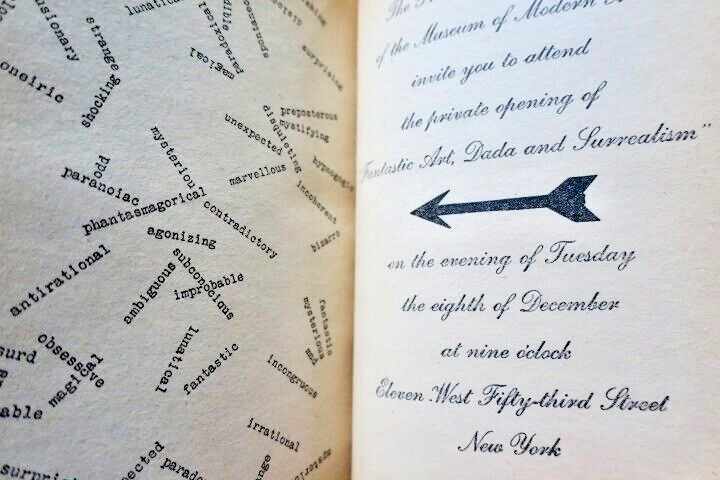 lunatical
strange
oneiric
shocking
paradoxical
magical
spontaneous
surprising
preposterous
mystifying
disquieting
unexpected
hypnogogic
marvellous
incoherent
mysterious
odd
paranoiac
phantasmagorical
contradictory
bizarre
agonizing
antirational
subconscious
ambiguous
improbable
fantastic
mysterious
mad
lunatical
obsessive
magical
fantastic
incongruous
able
irrational
The
of the Museum of Modern
invite you to attend
the private opening of
Fantastic Art, Dada and Surrealism"
on the evening of Tuesday
the eighth of December
at nine o'clock
Eleven West Fifty-third Street
New York